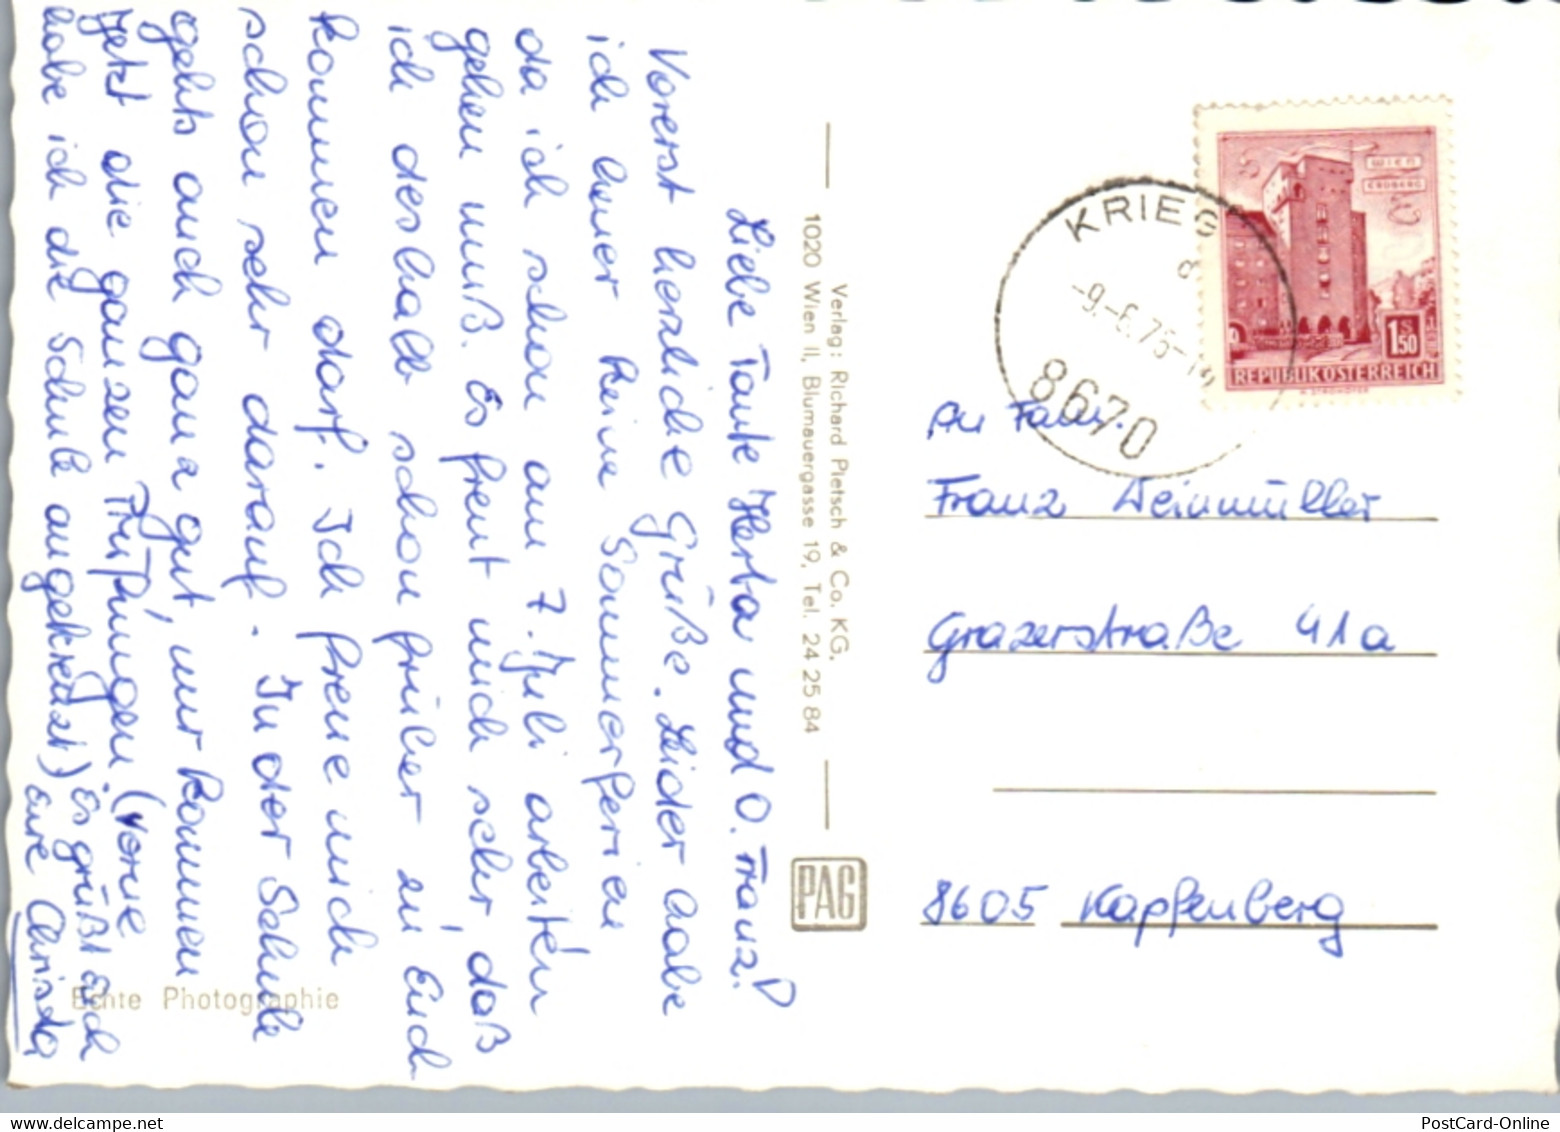 Liebe Tante Herta und O. Franz!
Vorerst herzliche Grüße. Leider habe
ich heuer keine Sommerferien
da ich schon am 7. Juli arbeiten
gehen muß. Es freut mich sehr, daß
ich deshalb schon früher zu Euch
kommen darf. Ich freue mich
schon sehr darauf. In der Schule
gehts auch ganz gut, nur kommen
jetzt die ganzen Prüfungen. (Vorne
habe ich die Schule angekreuzt) Es grüßt Euch
Eure Christa
Echte Photographie
Verlag: Richard Pietsch & Co. KG,
1020 Wien II, Blumauergasse 19, Tel. 24 25 84
PAG
KRIEG
-9.-6.75-
8670
WIEN
ERDBERG
1S50
REPUBLIK ÖSTERREICH
An Fam.
Franz Weinmüller
Grazerstraße 41a
8605 Kapfenberg
PostCard-Online